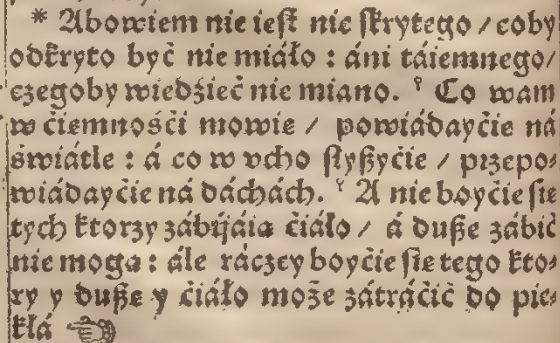 * Abowiem nie iest nic skrytego / coby
odkryto być nie miáło : áni táiemnego /
czegoby wiedźieć nie miano. Co wam
w ćiemnośći mowie / powiádayćie ná
świátle : á co w vcho słyßyćie / przepo⸗
wiádayćie ná dáchách. A nie boyćie sie
tych ktorzy zábijáia ćiáło / á duße zábić
nie moga : ále ráczey boyćie sie tego kto⸗
ry y duße y ćiáło może zátráćić do pie⸗
kłá ☜